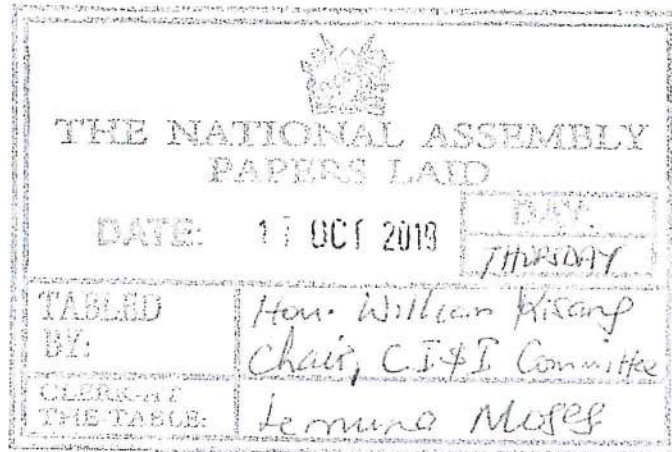 THE NATIONAL ASSEMBLY
PAPERS LAID
DATE: 17 OCT 2019
DAY:
THURSDAY
TABLED BY:
Hon. William Kisang
Chair, C.I&I Committee
CLERK-AT
THE-TABLE:
Lemuna Moses